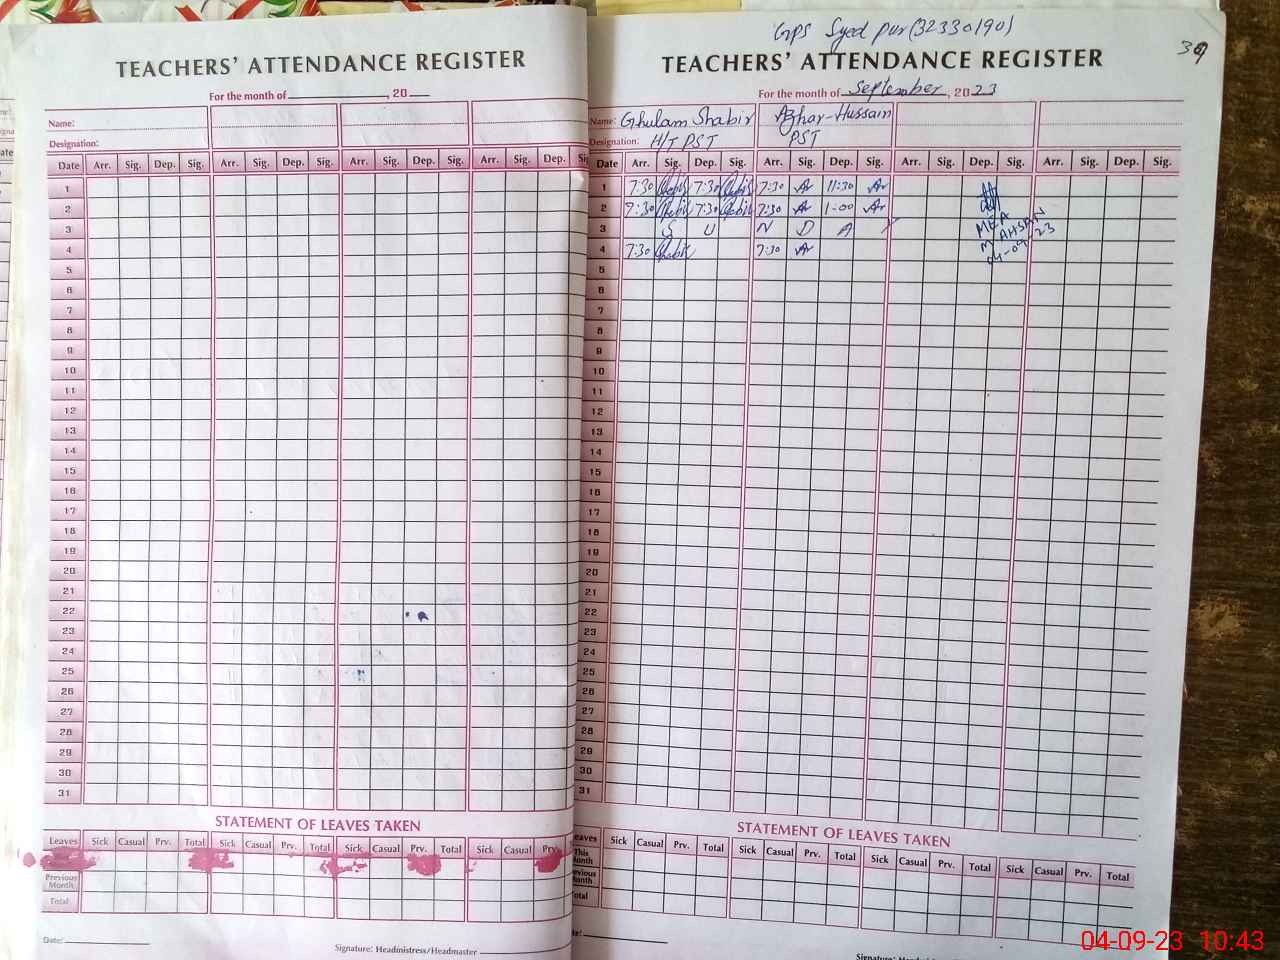 TEACHERS' ATTENDANCE REGISTER
For the month of , 20
Name:
Designation:
Date Arr. Sig. Dep. Sig. Arr. Sig. Dep. Sig. Arr. Sig. Dep. Sig. Arr. Sig. Dep.
1
2
3
4
5
6
7
8
9
10
11
12
13
14
15
16
17
18
19
20
21
22
23
24
25
26
27
28
29
30
31
STATEMENT OF LEAVES TAKEN
Leaves Sick Casual Prv. Total Sick Casual Prv. Total Sick Casual Prv. Total Sick Casual Prv.
Previous Month
Total
Date:
Signature: Headinistress/Headmaster
GPS Syed pur (32330190)
39
TEACHERS' ATTENDANCE REGISTER
For the month of September, 2023
Name: Ghulam Shabir Azhar Hussain
Designation: H/T PST PST
Date Arr. Sig. Dep. Sig. Arr. Sig. Dep. Sig. Arr. Sig. Dep. Sig. Arr. Sig. Dep. Sig.
1 7:30 7:30 7:30 11:30
2 7:30 7:30 7:30 1:00
3 S U N D A Y
4 7:30 7:30
MEA
M AHSAN
04-09-23
5
6
7
8
9
10
11
12
13
14
15
16
17
18
19
20
21
22
23
24
25
26
27
28
29
30
31
STATEMENT OF LEAVES TAKEN
Leaves Sick Casual Prv. Total Sick Casual Prv. Total Sick Casual Prv. Total Sick Casual Prv. Total
This Month
Previous Month
Total
04-09-23 10:43